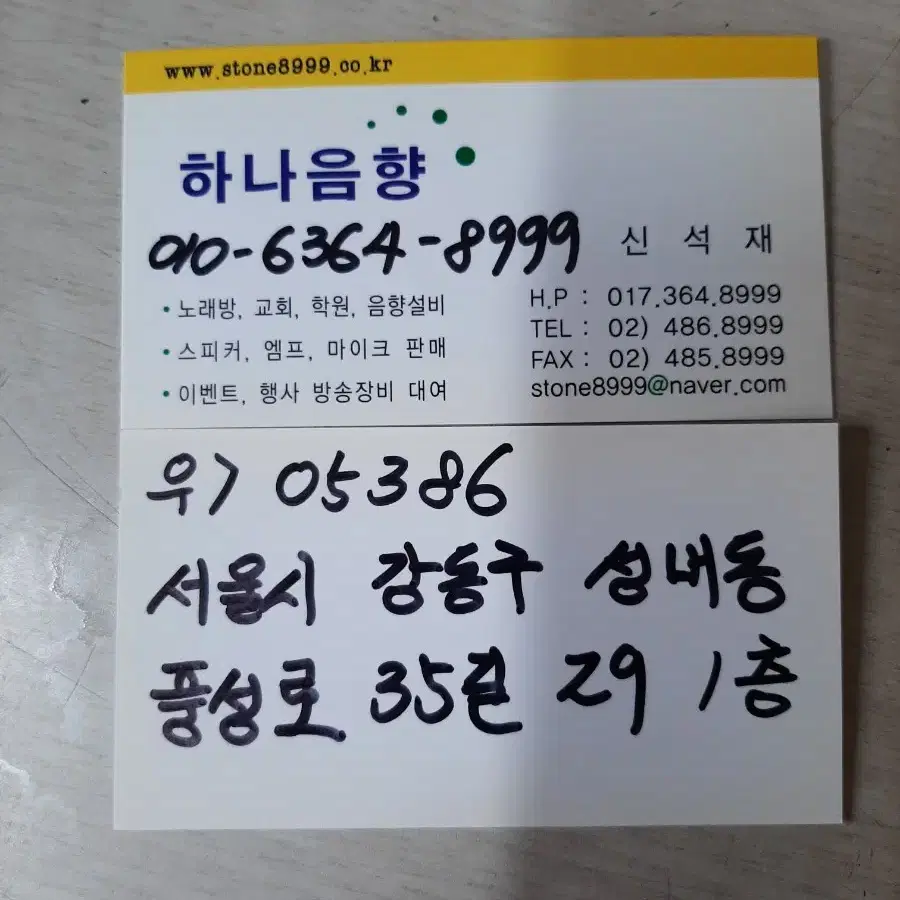 www.stone8999.co.kr
하나음향
010-6364-8999 신 석 재
• 노래방, 교회, 학원, 음향설비
• 스피커, 엠프, 마이크 판매
• 이벤트, 행사 방송장비 대여
H.P : 017.364.8999
TEL : 02) 486.8999
FAX : 02) 485.8999
stone8999@naver.com
우> 05386
서울시 강동구 성내동
풍성로 35길 29 1층